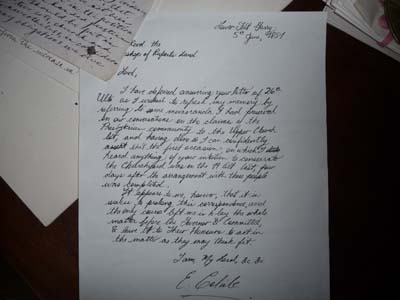 Lower Fort Garry
5th June, 1851
Revd the
shop of Ruperts Land
Lord,
I have deferred answering your letter of 26th
Ult as I wished to refresh my memory by
referring to some memoranda I had preserved
in our conversations on the claims of the
Presbyterian community to the Upper Church
lot, and having done so I can confidently
assert that the first occasion on which I
heard anything of your intention to consecrate
the Churchyard was on the 14 Ult last few
days after the arrangement with these people
was completed.
It appears to me, however, that it is
useless to prolong this correspondence, and
the only course left me is to lay the whole
matter before the Governor & Committee,
& leave it to Their Honours to act in
the matter as they may think fit.
I am, My Lord, &c &c
E. Colvile